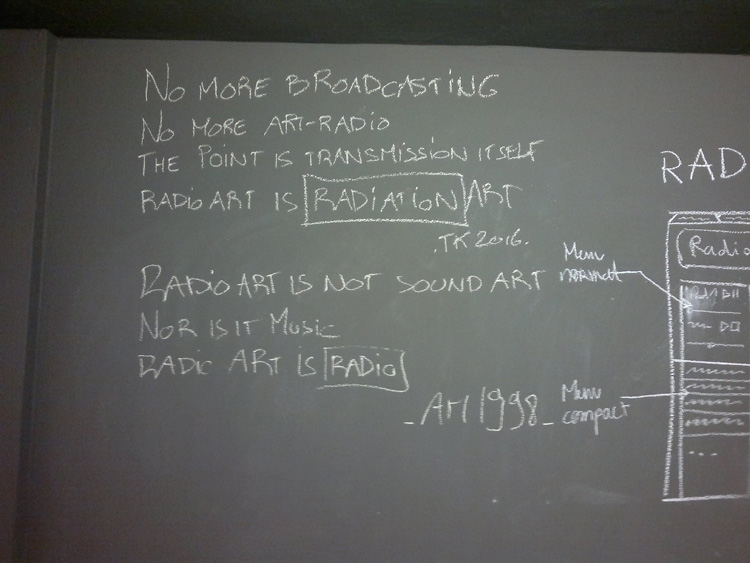 No MORE BROADCASTING
No MORE ART-RADIO
THE POINT IS TRANSMISSION ITSELF
RADIO ART IS RADIATION ART
.TK 2016.
RADIO ART IS NOT SOUND ART
NOR IS IT MUSIC
RADIO ART IS RADIO
_AH 1998_
RAD
Radio
Menu
normal
Menu
compact
...